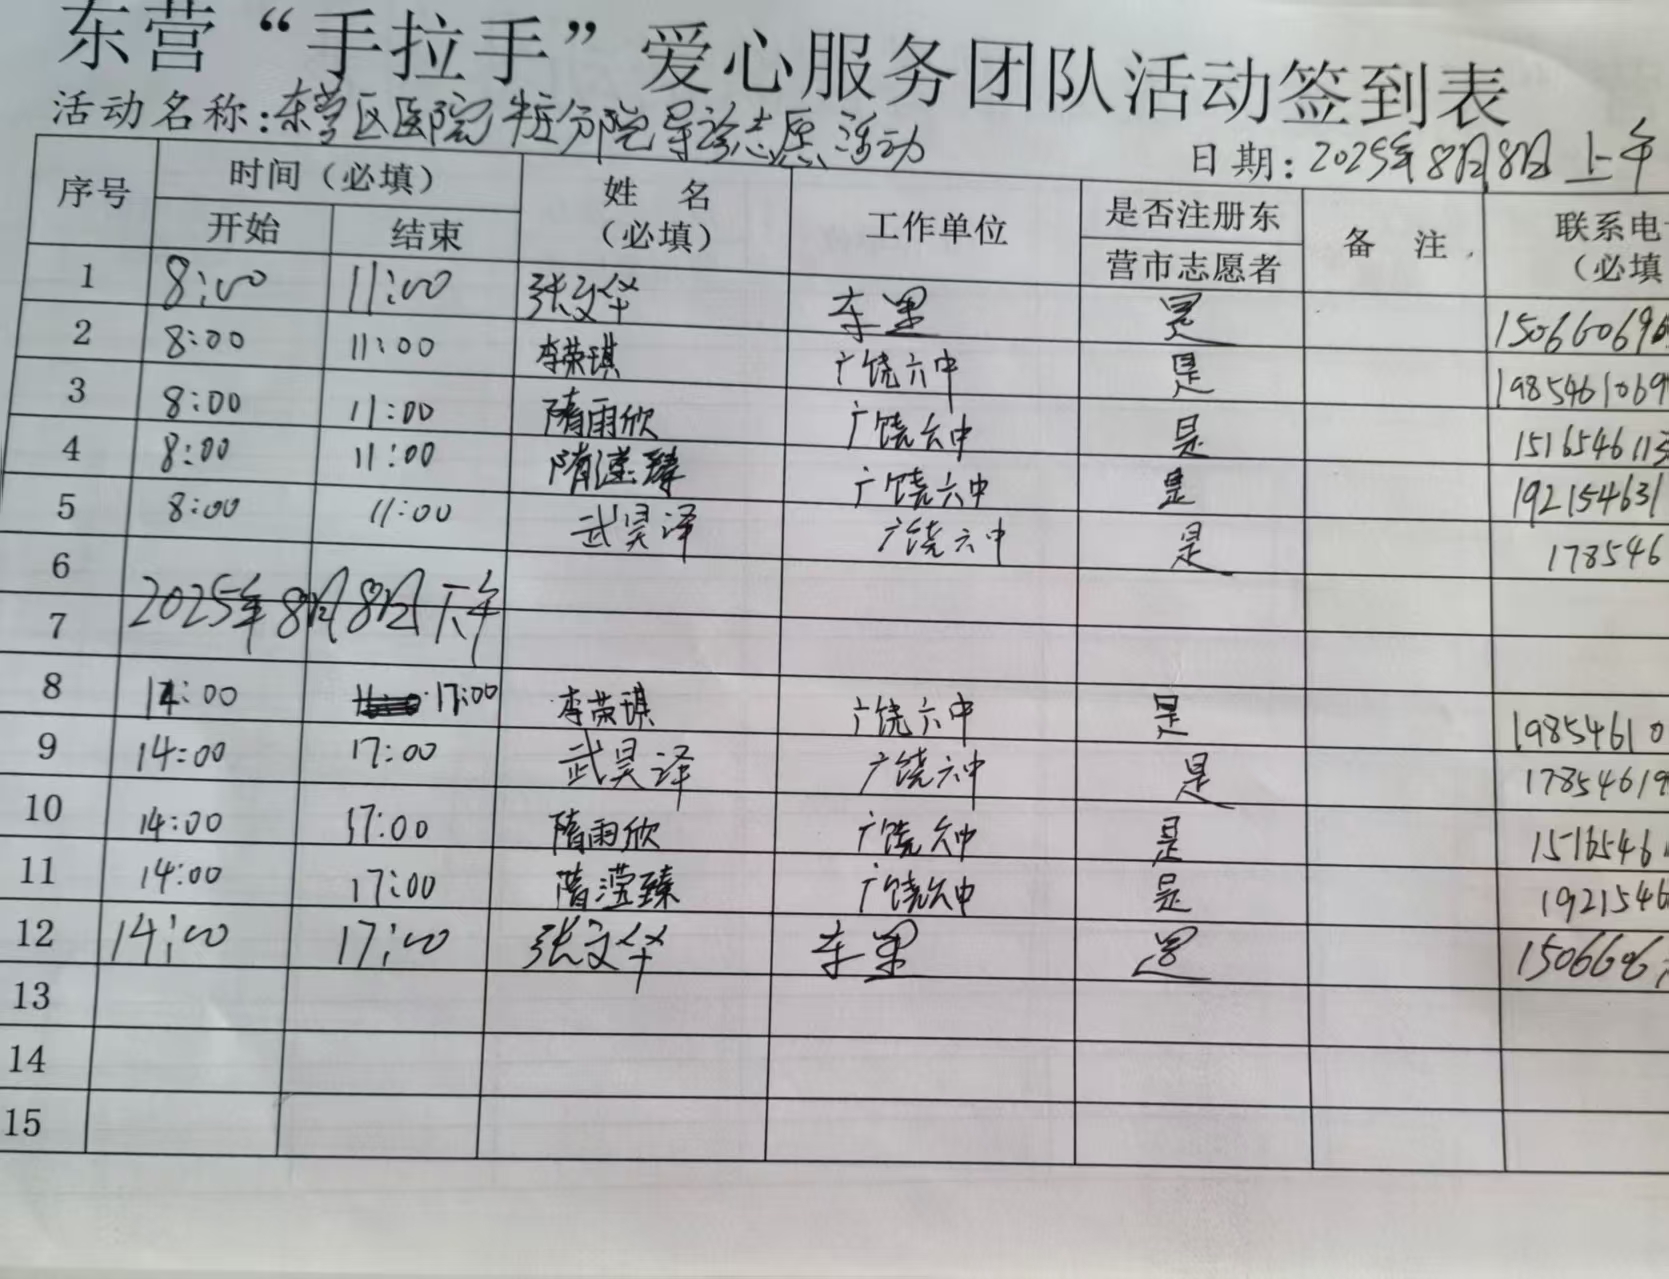 东营“手拉手”爱心服务团队活动签到表
活动名称:东营区医院牛庄分院导诊志愿活动
日期:2025年8月8日上午
序号 时间(必填) 姓 名 (必填) 工作单位 是否注册东 营市志愿者 备 注 联系电 (必填
开始 结束
1 8:00 11:00 张文华 是 150660696
2 8:00 11:00 李荣琪 广饶六中 是 1985461069
3 8:00 11:00 隋雨欣 广饶六中 是 151654611
4 8:00 11:00 隋滢臻 广饶六中 是 192154631
5 8:00 11:00 武昊泽 广饶六中 是 178546
6
2025年8月8日下午
7
8 14:00 17:00 李荣琪 广饶六中 是 19854610
9 14:00 17:00 武昊泽 广饶六中 是 17854619
10 14:00 17:00 隋雨欣 广饶六中 是 1516546
11 14:00 17:00 隋滢臻 广饶六中 是 1921546
12 14:00 17:00 张文华 是 1506606
13
14
15